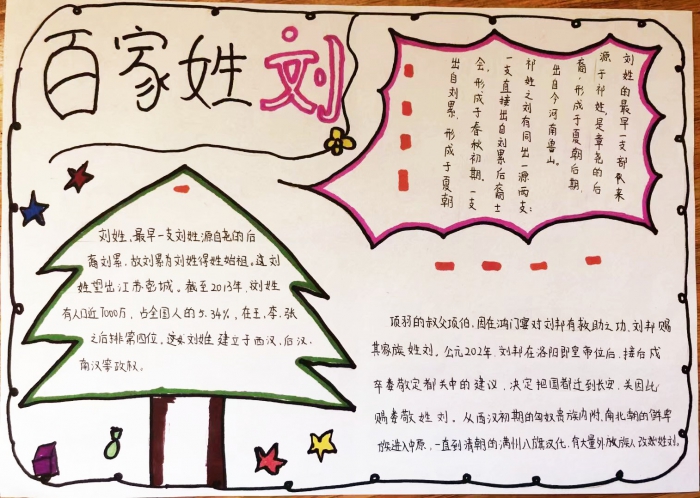 百家姓 刘
刘姓的最早一支都来
源于祁姓，是帝尧的后
裔，形成于夏朝后期，
出自今河南鲁山。
祁姓之刘有同出一源两支：
一支直接出自刘累后裔士
会，形成于春秋初期。一支
出自刘累，形成于夏朝
刘姓，最早一支刘姓源自尧的后
裔刘累，故刘累为刘姓得姓始祖。这刘
姓望出江苏城。截至2013年，刘姓
有人口近7000万，占全国人的5.34%，在王、李、张
之后排第四位。这刘姓建立于西汉，后汉，
南汉等政权。
项羽的叔父项伯，因在鸿门宴对刘邦有救助之功，刘邦赐
其家族姓刘。公元202年，刘邦在洛阳即皇帝位后，接台戍
卒娄敬定都关中的建议，决定把国都迁到长安，关因此
赐娄敬姓刘。从西汉初期的匈奴贵族内附，南北朝的鲜卑
族进入中原，一直到清朝的满州八旗汉化，有大量外族族人改姓刘。